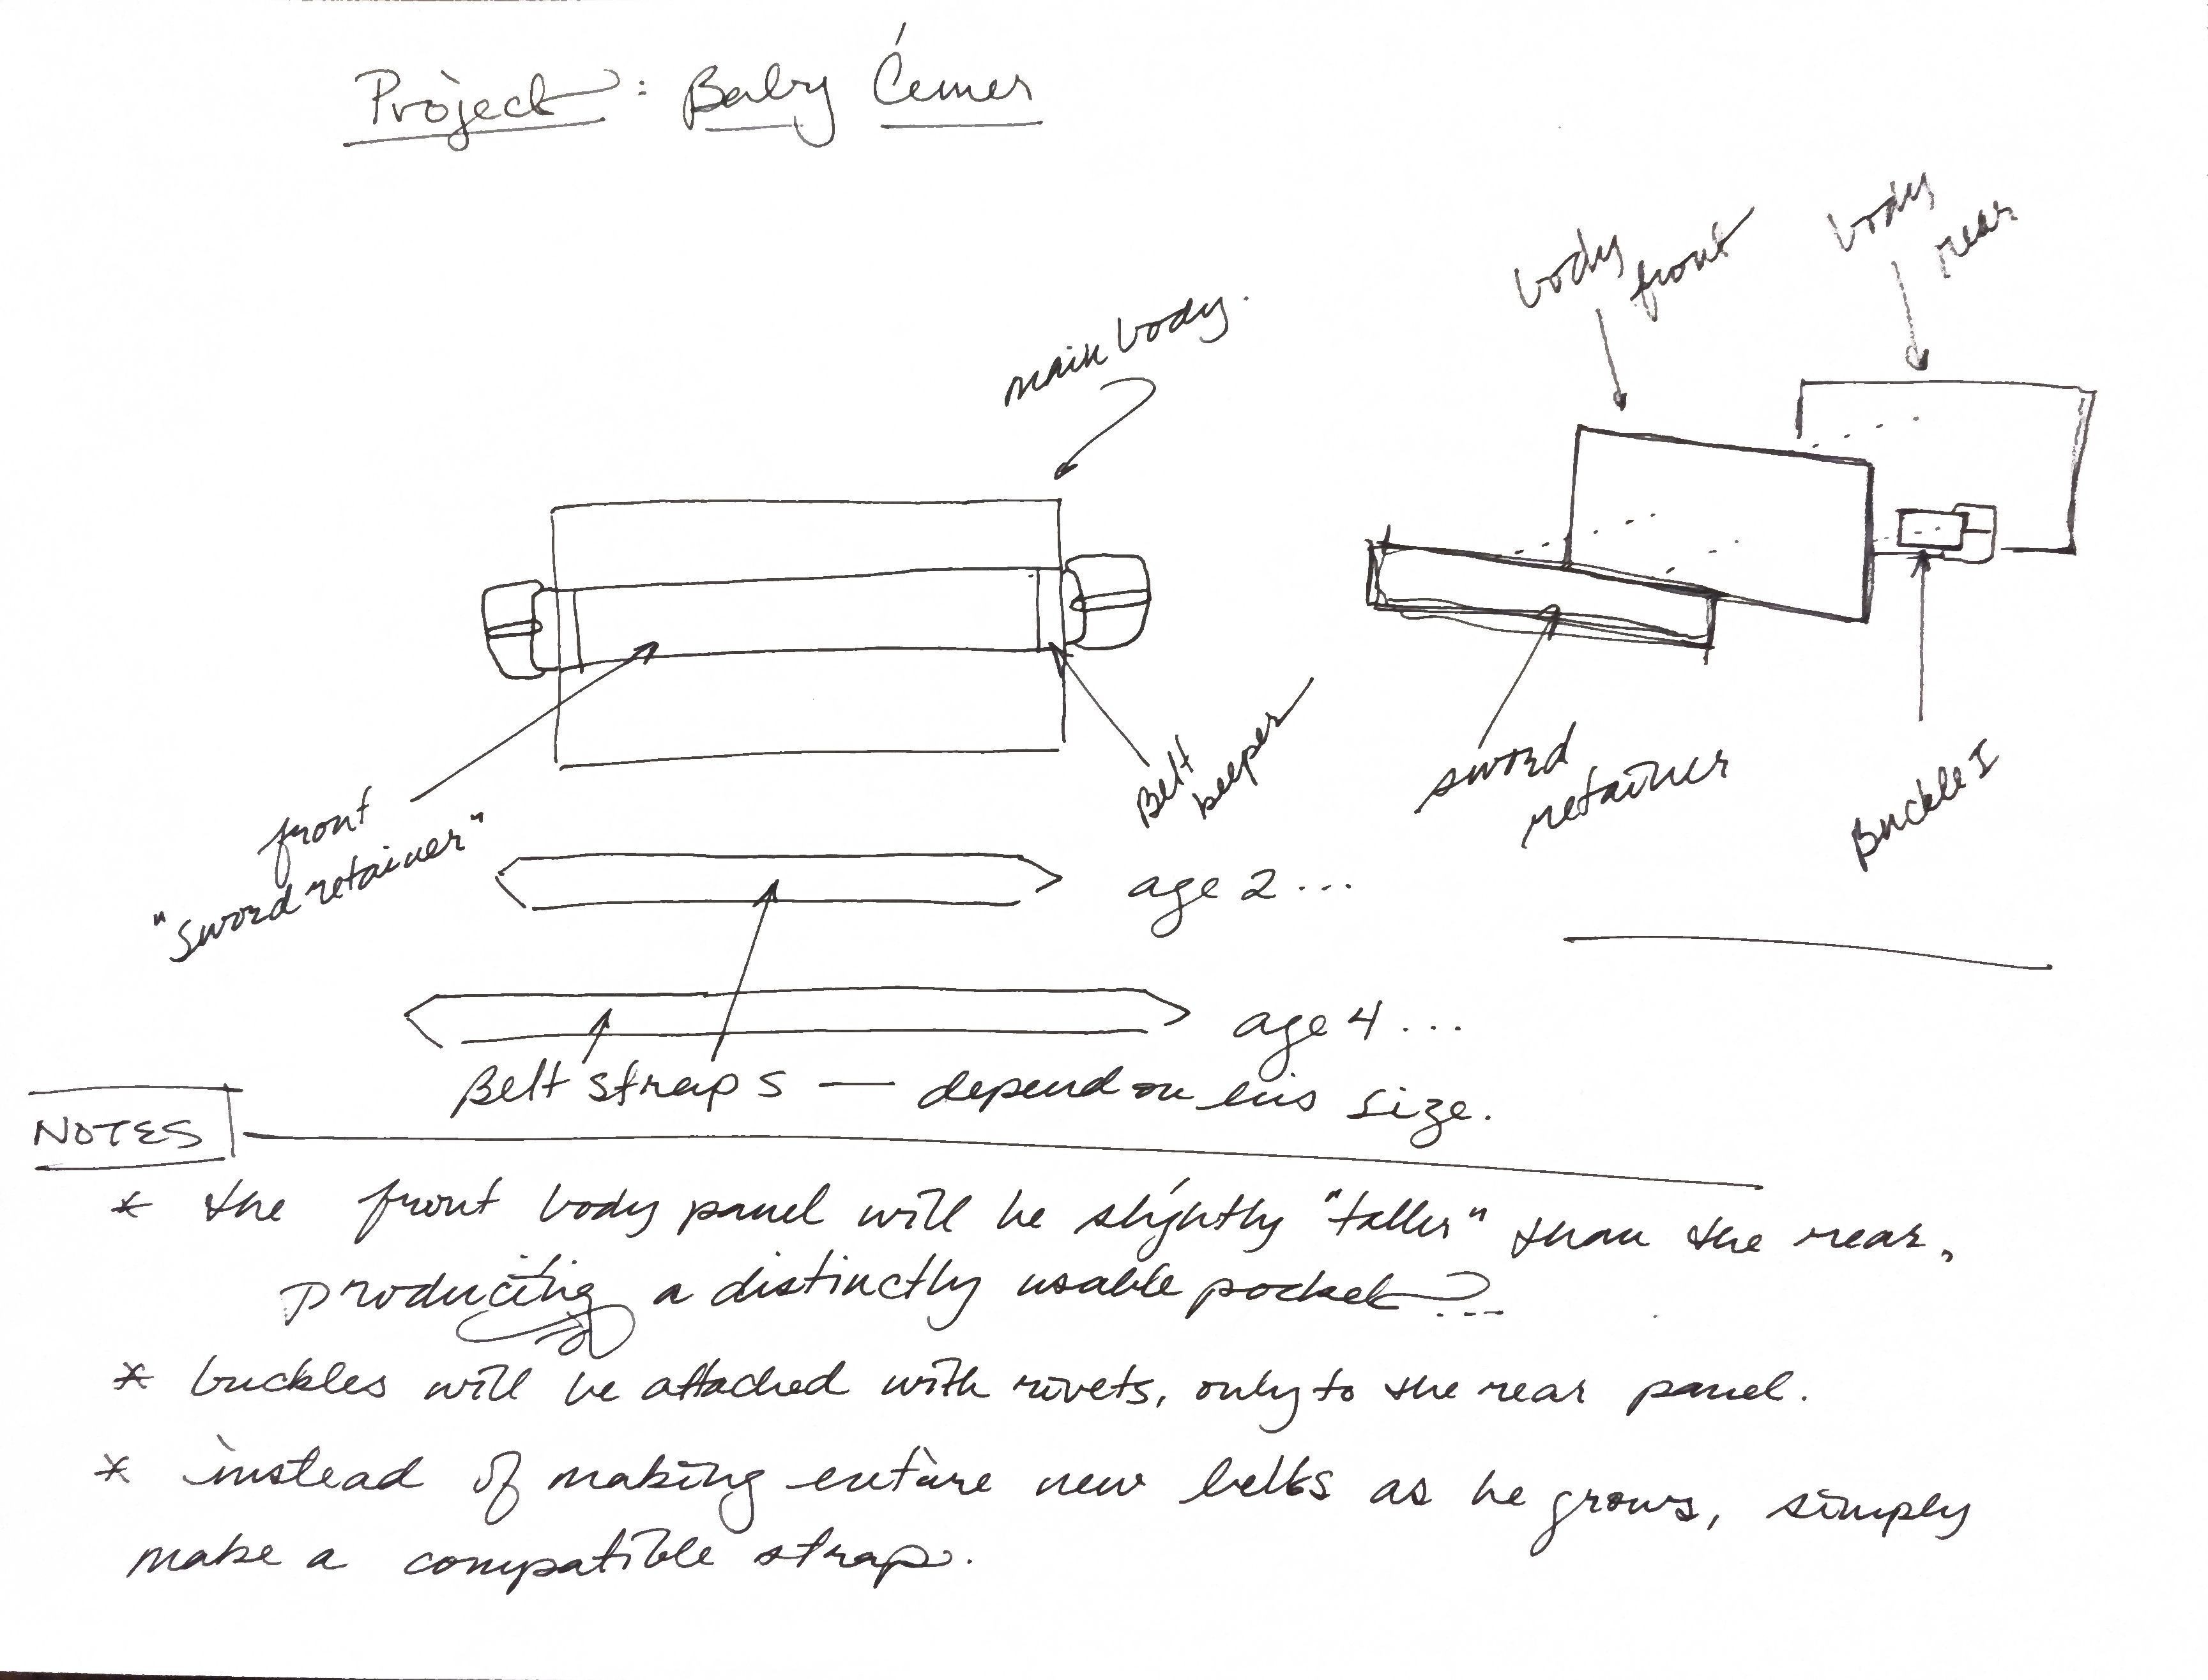 Project: Baby Ćemer
body front
body rear
main body.
front
"sword retainer"
Belt
keeper
sword
retainer
Buckle I
age 2...
age 4...
Belt straps — depend on his size.
NOTES
* the front body panel will be slightly "taller" than the rear,
producing a distinctly usable pocket...
* buckles will be attached with rivets, only to the rear panel.
* instead of making entire new belts as he grows, simply
make a compatible strap.